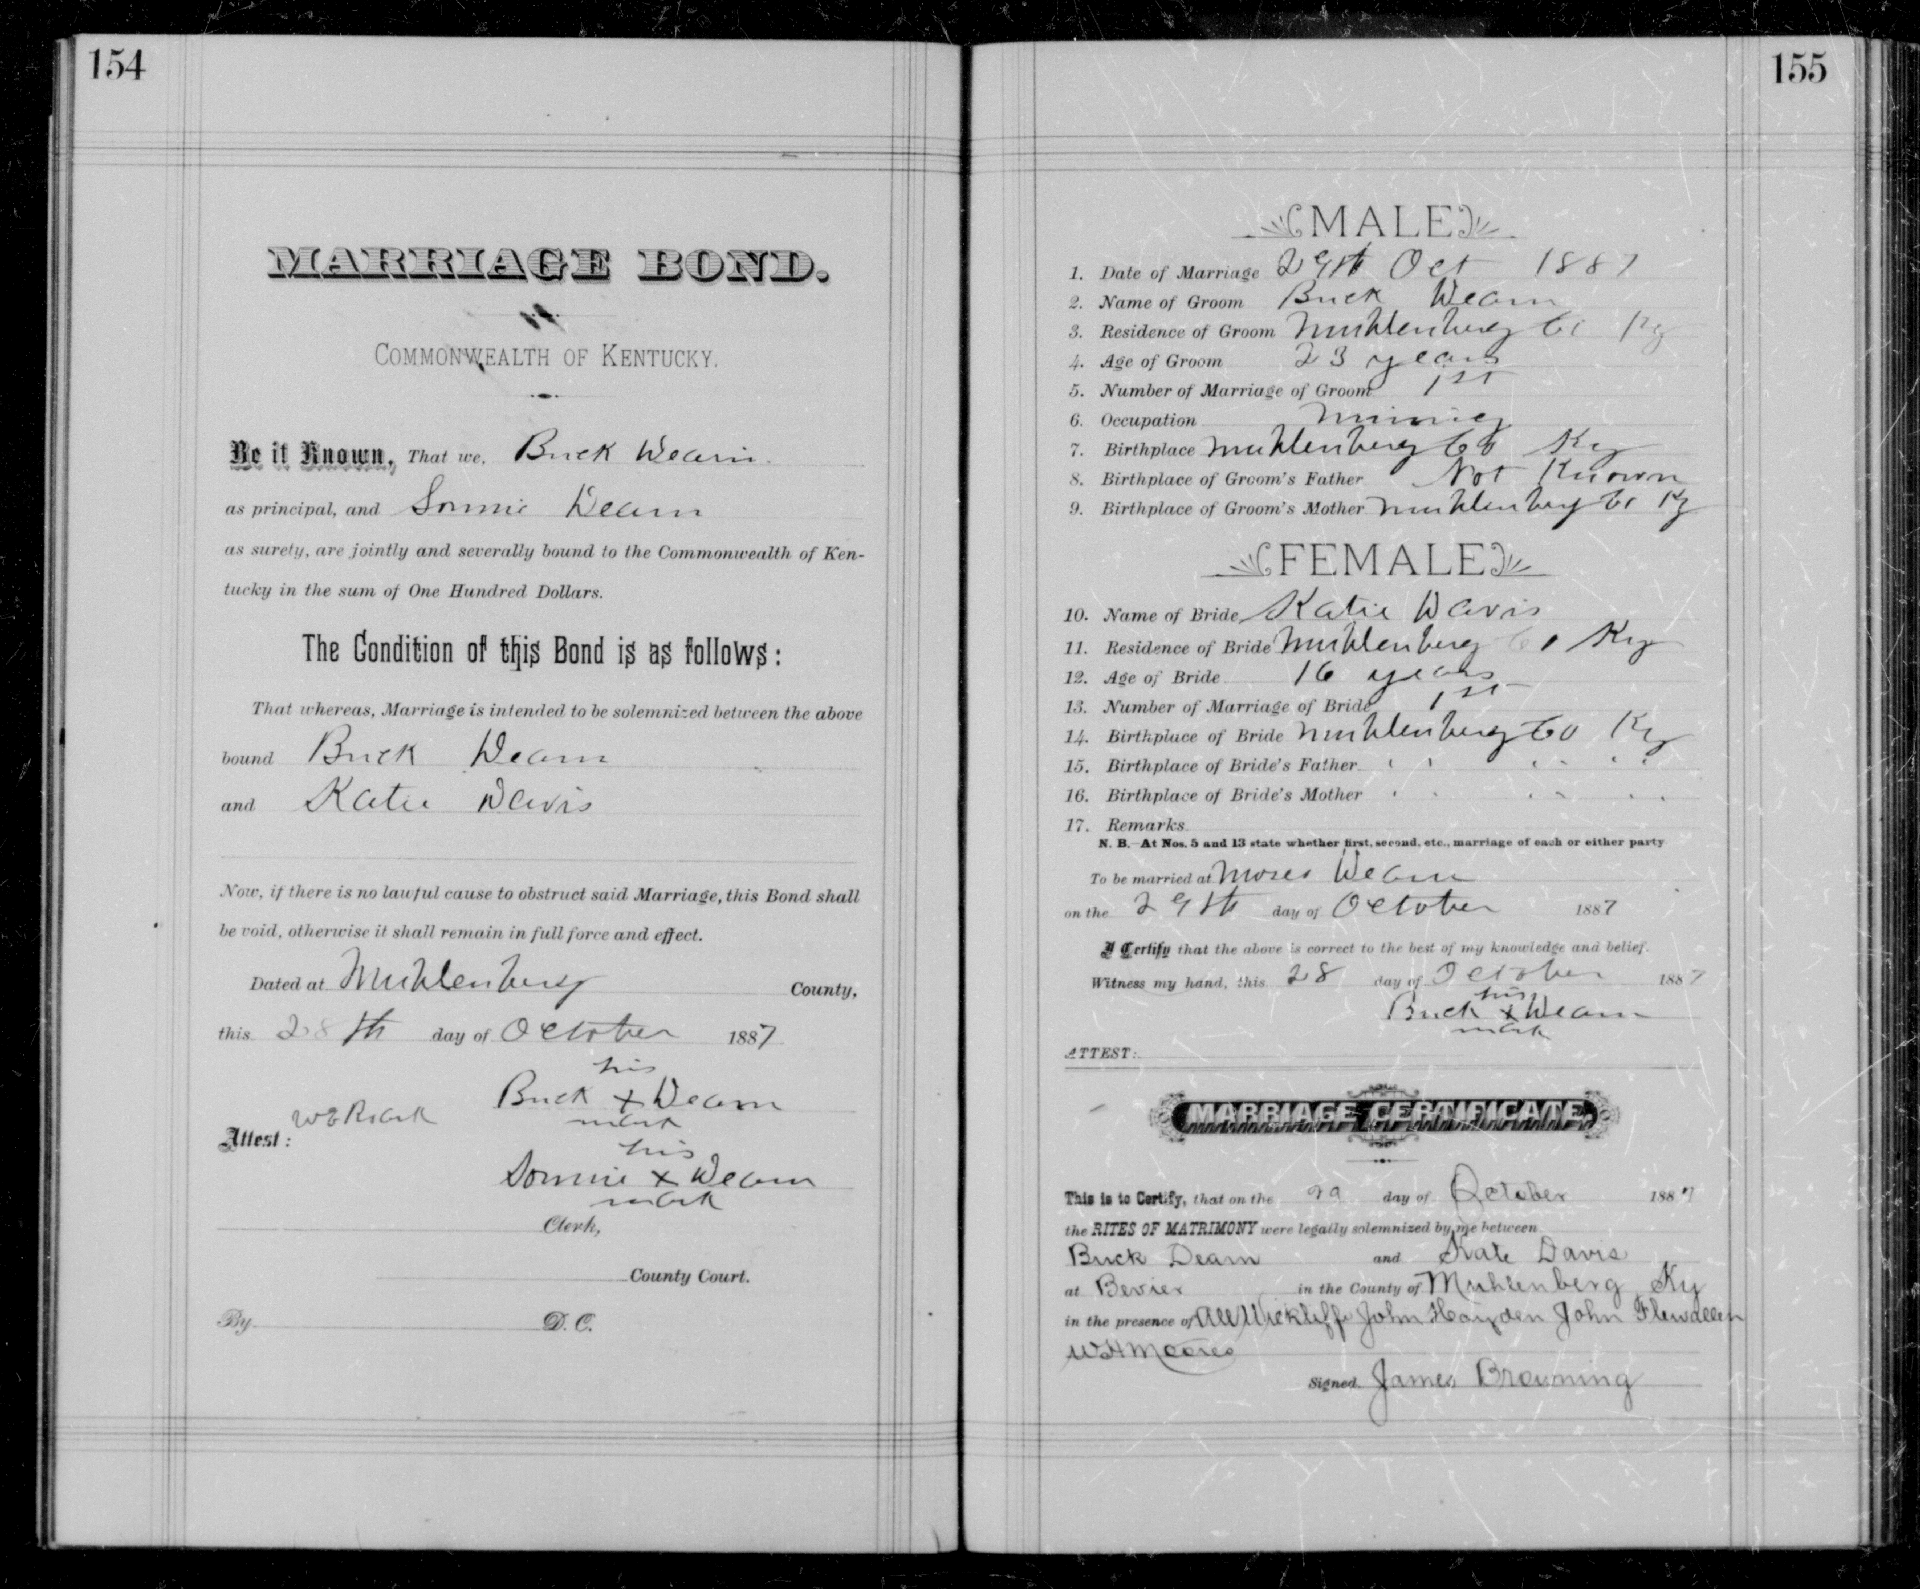 154
MARRIAGE BOND.
COMMONWEALTH OF KENTUCKY.
Be it Known, That we, Buck Dearn
as principal, and Sonnie Dearn
as surety, are jointly and severally bound to the Commonwealth of Ken-
tucky in the sum of One Hundred Dollars.
The Condition of this Bond is as follows:
That whereas, Marriage is intended to be solemnized between the above
bound Buck Dearn
and Katie Davis
Now, if there is no lawful cause to obstruct said Marriage, this Bond shall
be void, otherwise it shall remain in full force and effect.
Dated at Muhlenberg County,
this 28th day of October 1887
his
Buck x Dearn
mark
Attest:
his
Sonnie x Dearn
mark
Clerk,
County Court.
By D. C.
155
MALE
1. Date of Marriage 29th Oct 1887
2. Name of Groom Buck Dearn
3. Residence of Groom Muhlenberg Co Ky
4. Age of Groom 23 years
5. Number of Marriage of Groom 1st
6. Occupation
7. Birthplace Muhlenberg Co Ky
8. Birthplace of Groom's Father Not Known
9. Birthplace of Groom's Mother Muhlenberg Co Ky
FEMALE
10. Name of Bride Katie Davis
11. Residence of Bride Muhlenberg Co Ky
12. Age of Bride 16 years
13. Number of Marriage of Bride 1st
14. Birthplace of Bride Muhlenberg Co Ky
15. Birthplace of Bride's Father " " " "
16. Birthplace of Bride's Mother " " " "
17. Remarks
N. B.—At Nos. 5 and 13 state whether first, second, etc., marriage of each or either party
To be married at Moses Dearn
on the 29th day of October 1887
I Certify that the above is correct to the best of my knowledge and belief.
Witness my hand, this 28 day of October 1887
his
Buck x Dearn
mark
ATTEST:
MARRIAGE CERTIFICATE.
This is to Certify, that on the 29 day of October 1887
the RITES OF MATRIMONY were legally solemnized by me between
Buck Dearn and Kate Davis
at Bevier in the County of Muhlenberg Ky
in the presence of AW Wickliffe John Hayden John Flewallen
WH Moores
Signed James Browning